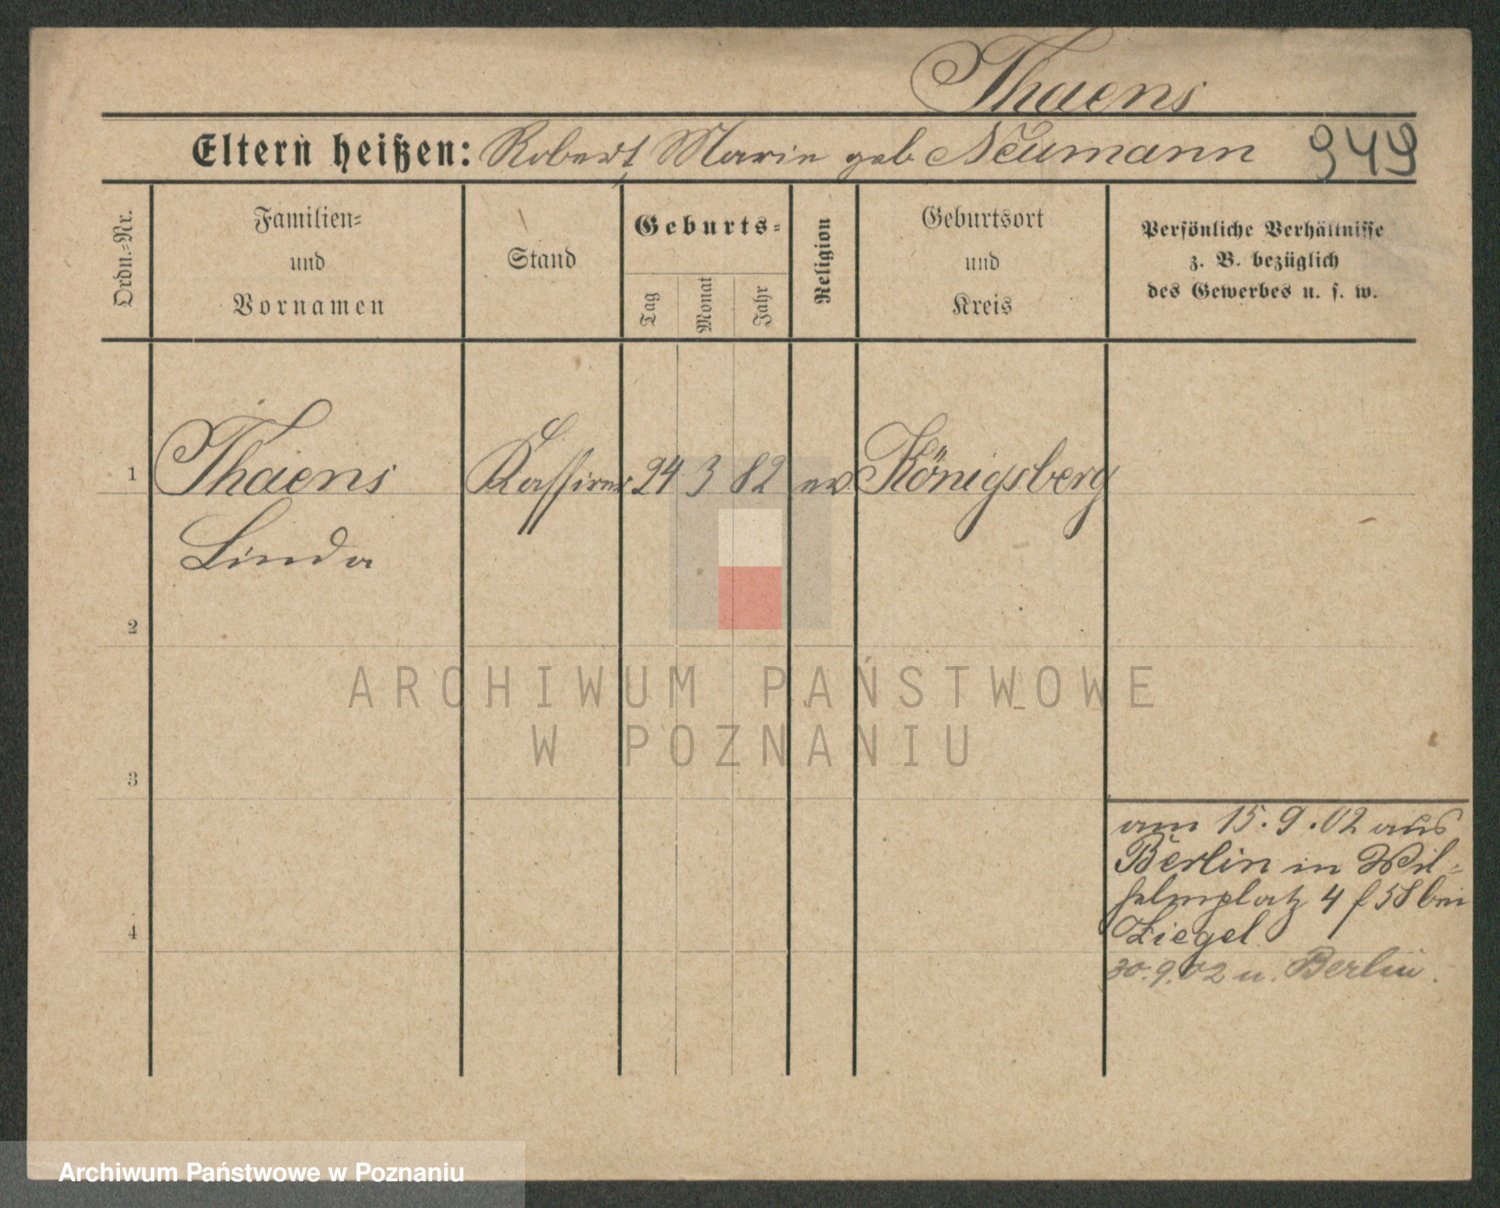 Thaens
Eltern heißen: Robert, Marie geb Neumann 949
Ordn.-Nr.
Familien-
und
Vornamen
Stand
Geburts-
Tag
Monat
Jahr
Religion
Geburtsort
und
Kreis
Persönliche Verhältnisse
z. B. bezüglich
des Gewerbes u. s. w.
1 Thaens Kassirer 24 3 82 ev Königsberg
Linda
2
ARCHIWUM PAŃSTWOWE
W POZNANIU
3
am 15.9.02 aus
Berlin in Wil-
helmplatz 4 f 58 bei
4 Ziegel
30.9.02 n. Berlin.
Archiwum Państwowe w Poznaniu